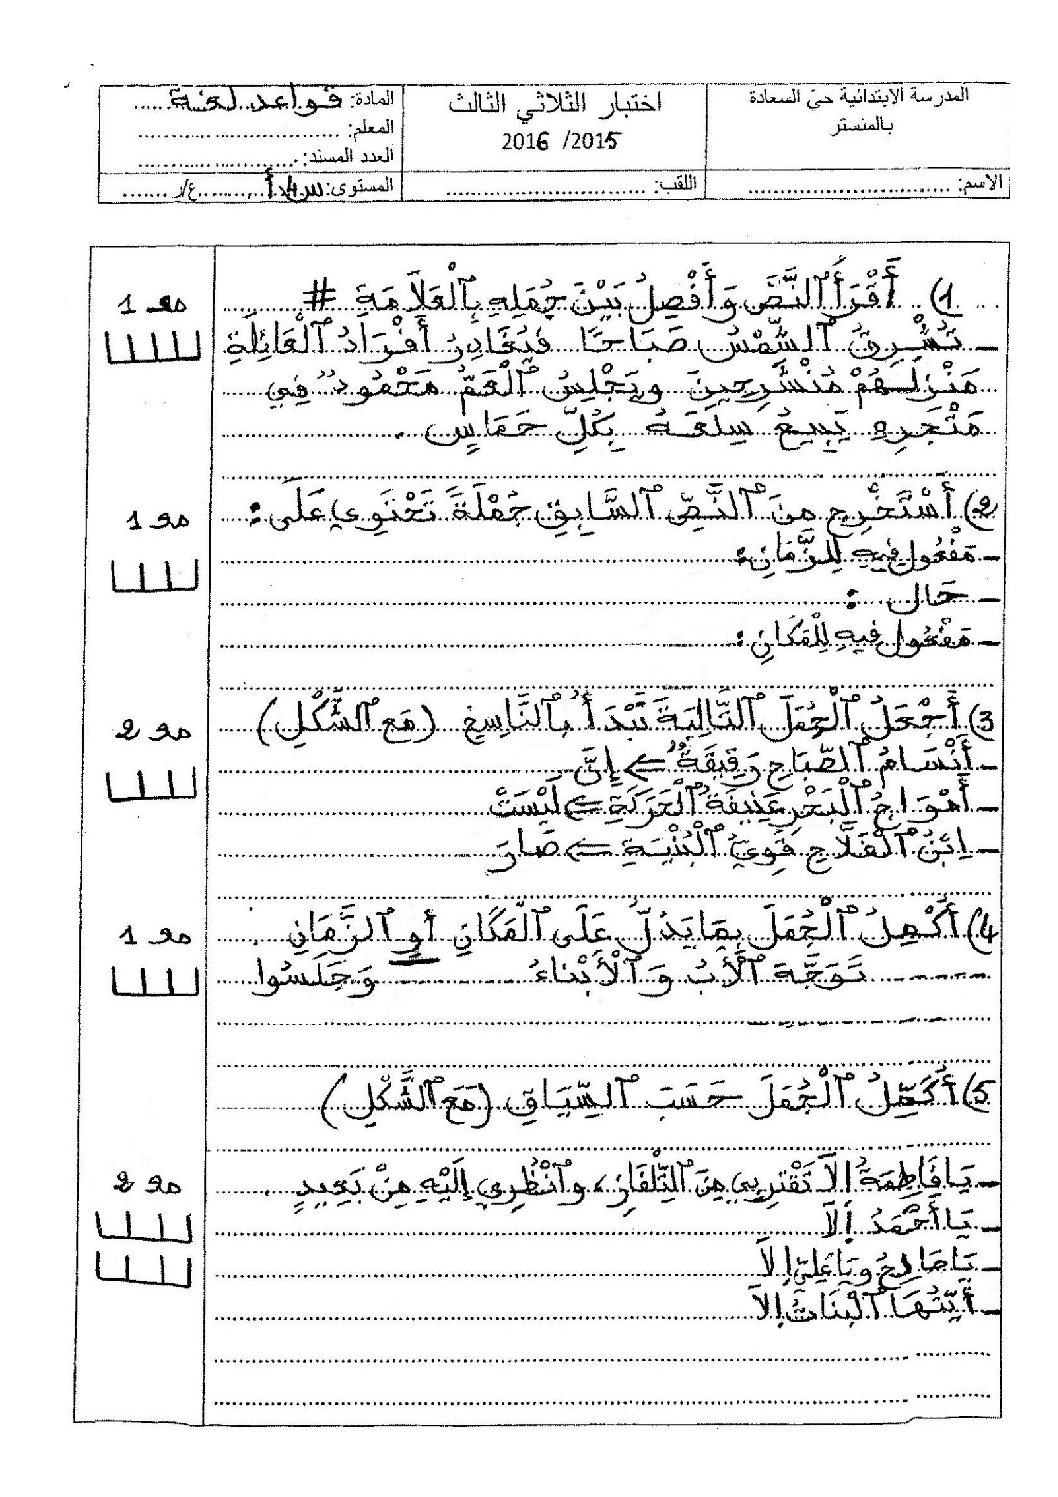 المدرسة الابتدائية حيّ السعادة
بالمنستر
اختبار الثلاثي الثالث
2016 /2015
المادة: قواعد لغة
المعلم: ........................
العدد المسند: ........................
الاسم: ........................
اللقب: ........................
المستوى: س 4 أ ........ ع/ر ........
1) أَقْرَأُ ٱلنَّصَّ وَأَفْصِلُ بَيْنَ جُمَلِهِ بِٱلْعَلَامَةِ #
مع 1
ـ تُشْرِقُ ٱلشَّمْسُ صَبَاحًا فَيُغَادِرُ أَفْرَادُ ٱلْعَائِلَةِ
مَنْزِلَهُمْ مُنْشَرِحِينَ وَيَجْلِسُ ٱلْعَمُّ مَحْمُودٌ فِي
مَتْجَرِهِ يَبِيعُ سِلَعَهُ بِكُلِّ حَمَاسٍ .
2) أَسْتَخْرِجُ مِنَ ٱلنَّصِّ ٱلسَّابِقِ جُمْلَةً تَحْتَوِي عَلَى :
مع 1
ـ مَفْعُولٍ فِيهِ لِلزَّمَانِ :
ـ حَال :
ـ مَفْعُول فِيهِ لِلْمَكَانِ :
3) أَجْعَلُ ٱلْجُمَلَ ٱلتَّالِيَةَ تَبْدَأُ بِٱلنَّاسِخِ (مَعَ ٱلشَّكْلِ)
مع 2
ـ أَنْسَامُ ٱلصَّبَاحِ رَقِيقَةٌ ⇐ إِنَّ
ـ أَمْوَاجُ ٱلْبَحْرِ عَنِيفَةُ ٱلْحَرَكَةِ ⇐ لَيْسَتْ
ـ اِبْنُ ٱلْفَلَّاحِ قَوِيُّ ٱلْبُنْيَةِ ⇐ صَارَ
4) أُكْمِلُ ٱلْجُمَلَ بِمَا يَدُلُّ عَلَى ٱلْمَكَانِ أَوِ ٱلزَّمَانِ .
مع 1
------ تَوَجَّهَ ٱلْأَبُ وَ ٱلْأَبْنَاءُ ------ وَجَلَسُوا
------
5) أُكَمِّلُ ٱلْجُمَلَ حَسَبَ ٱلسِّيَاقِ (مَعَ ٱلشَّكْلِ)
ـ يَا فَاطِمَةُ ! لَا تَقْتَرِبِي مِنَ ٱلتِّلْفَازِ ، وَٱنْظُرِي إِلَيْهِ مِنْ بَعِيدٍ .
مع 2
ـ يَا أَحْمَدُ ! لَا
ـ يَا صَالِحُ وَيَا عَلِيُّ ! لَا
ـ أَيَّتُهَا ٱلْبَنَاتُ ! لَا